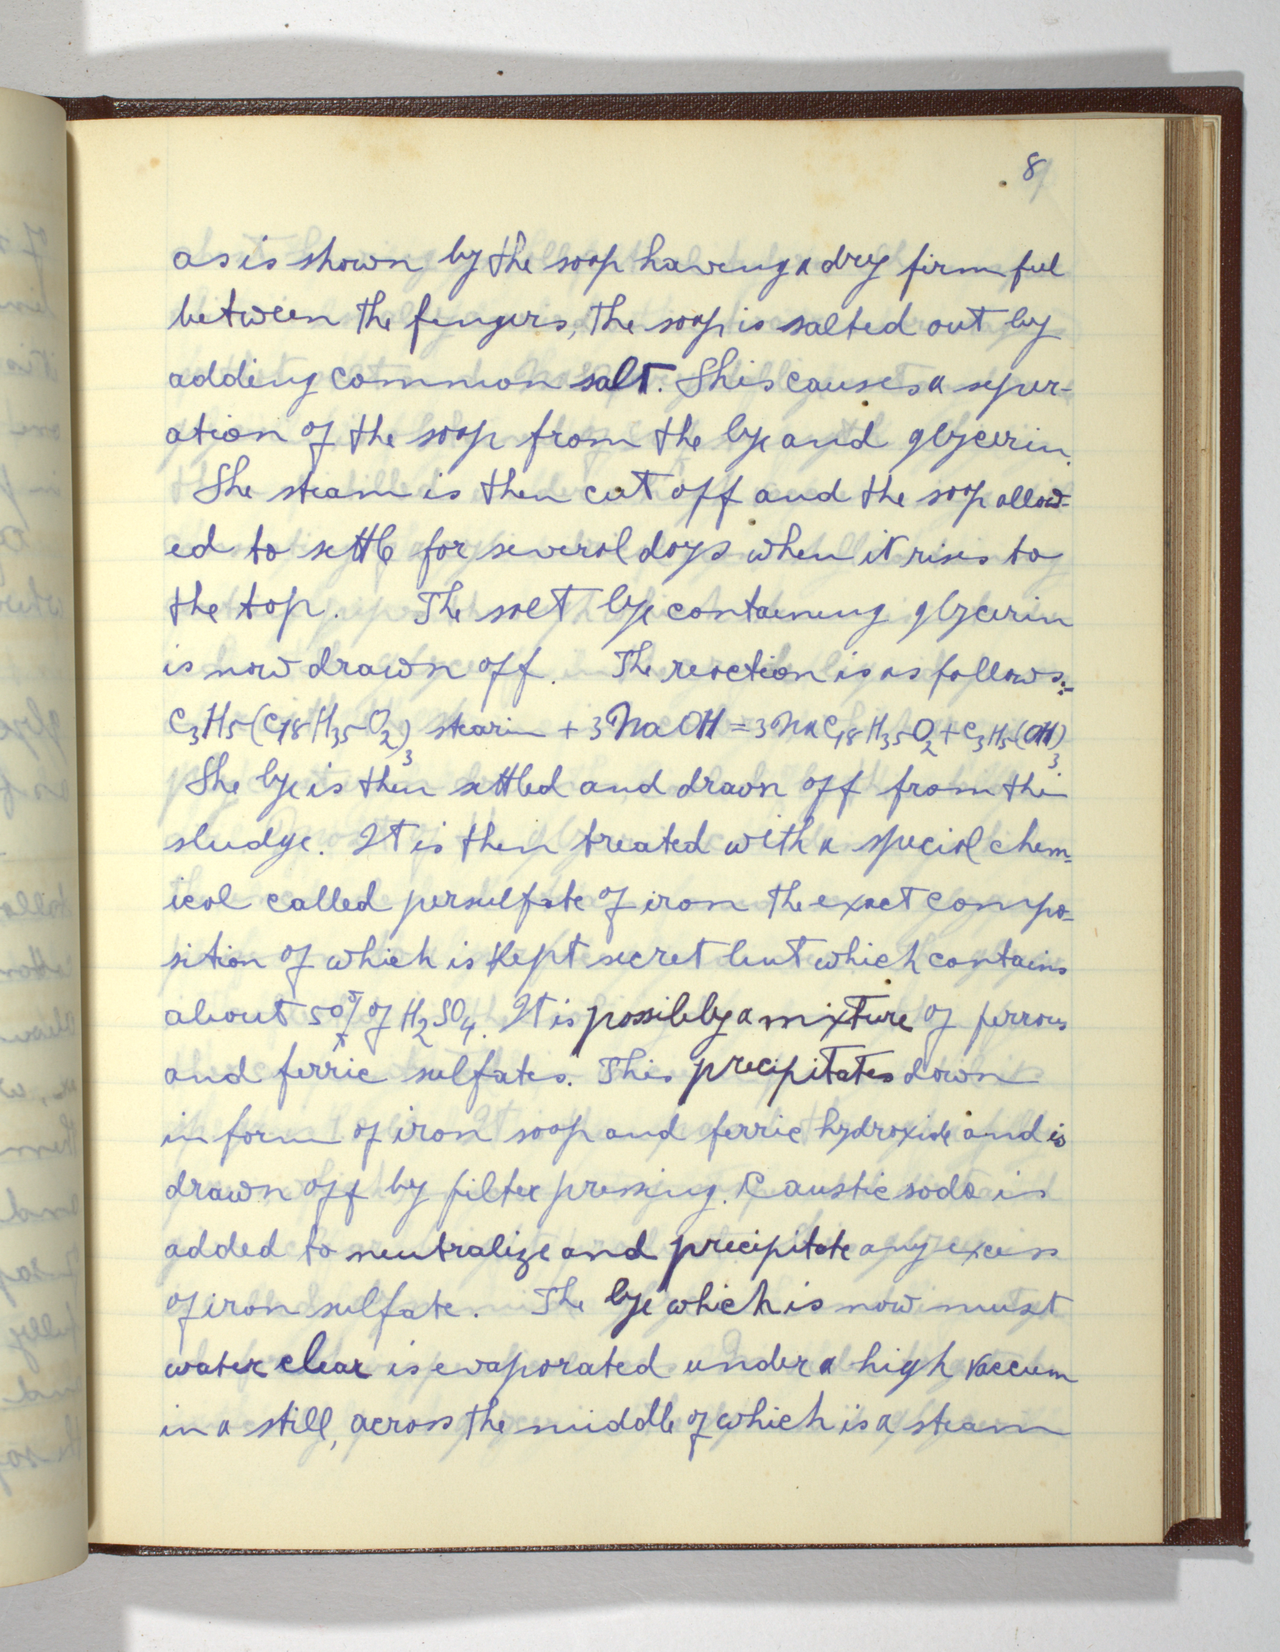 8
as is shown by the soap having a dry firm feel
between the fingers, the soap is salted out by
adding common salt. This causes a separ-
ation of the soap from the lye and glycerin.
The steam is then cut off and the soap allow-
ed to settle for several days when it rises to
the top. The salt lye containing glycerin
is now drawn off. The reaction is as follows:-
C3H5(C18H35O2)3 stearin + 3NaOH = 3NaC18H35O2 + C3H5(OH)3
The lye is then settled and drawn off from the
sludge. It is then treated with a special chem-
ical called persulfate of iron the exact compo-
sition of which is kept secret but which contains
about 50% of H2SO4. It is possibly a mixture of ferrous
and ferric sulfates. This precipitates down
in form of iron soap and ferric hydroxide and is
drawn off by filter pressing. Caustic soda is
added to neutralize and precipitate any excess
of iron sulfate. The lye which is now
water clear is evaporated under a high vaccum
in a still, across the middle of which is a steam